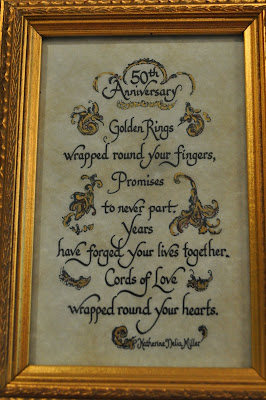 50th
Anniversary
Golden Rings
wrapped round your fingers,
Promises
to never part.
Years
have forged your lives together.
Cords of Love
wrapped round your hearts.
Katherine Nelia Miller